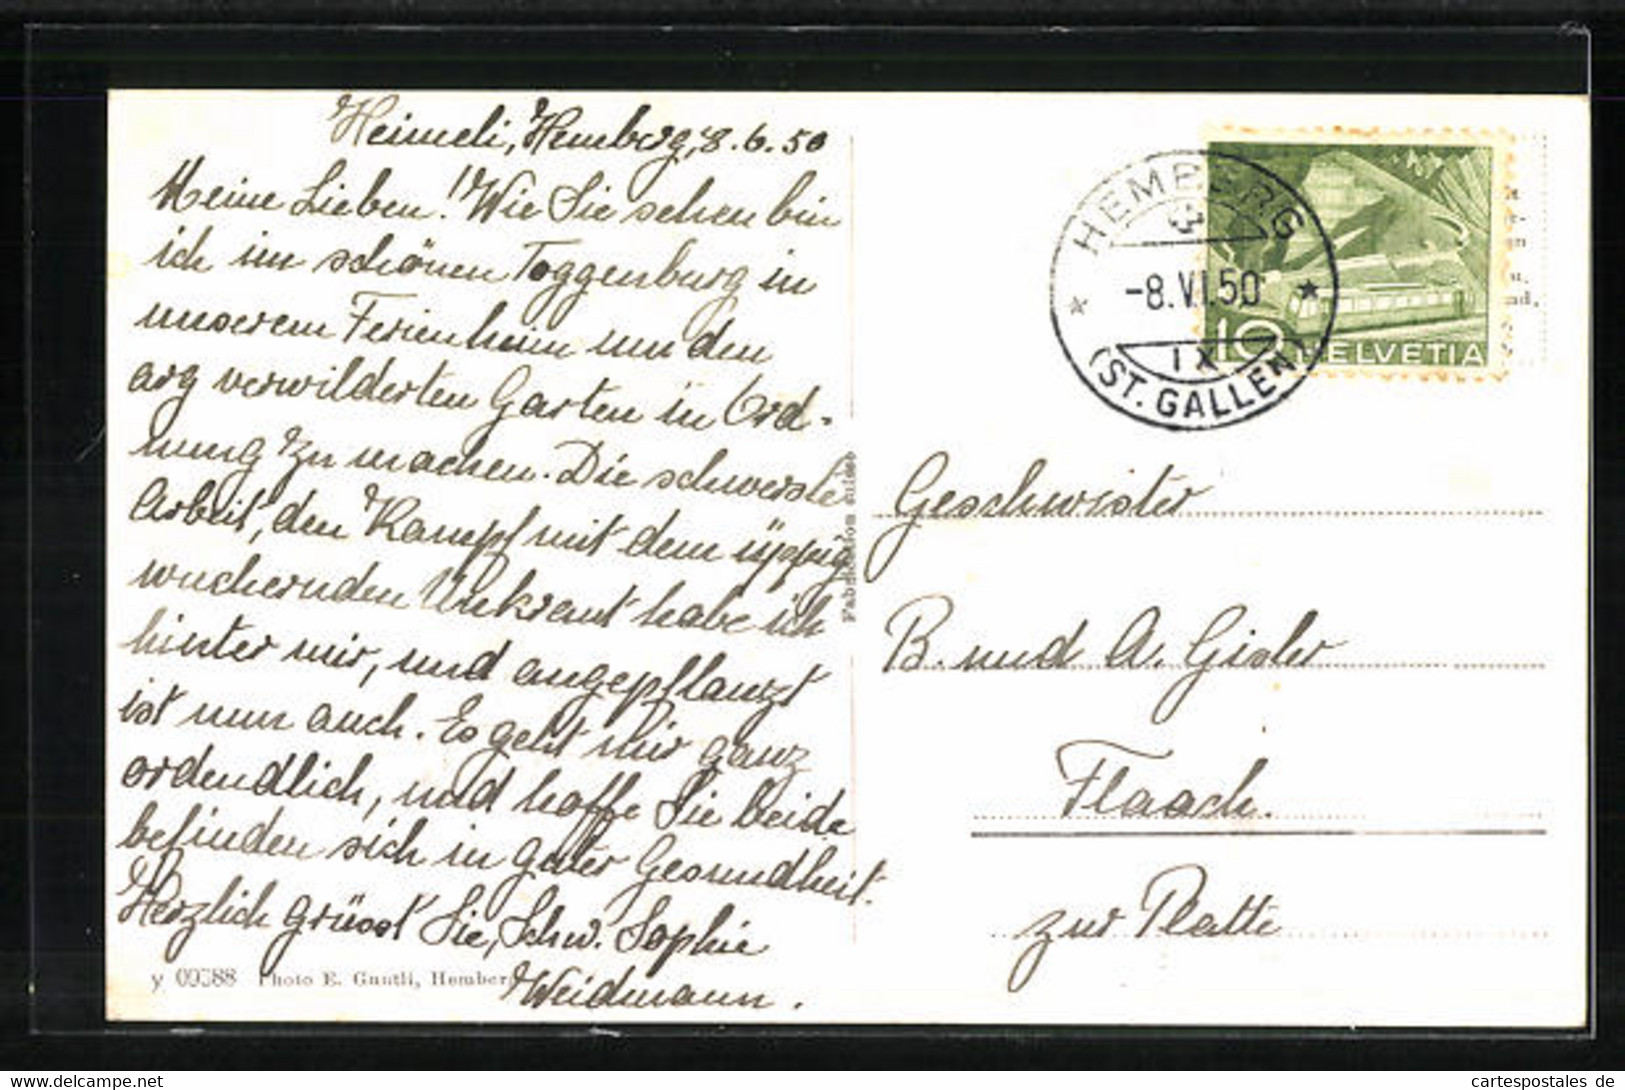 Heimeli, Hemberg, 8.6.50
Meine Lieben! Wie Sie sehen bin
ich im schönen Toggenburg in
unserem Ferienheim um den
arg verwilderten Garten in Ord-
nung zu machen. Die schwerste
Arbeit, den Kampf mit dem üppig
wuchernden Unkraut habe ich
hinter mir, und angepflanzt
ist nun auch. Es geht mir ganz
ordendlich, und hoffe Sie beide
befinden sich in guter Gesundheit.
Herzlich grüsst Sie, Schw. Sophie
Weidmann.
Photo E. Gantli, Hemberg
Fabrikation suisse
HEMBERG
-8.VI.50
IX
(ST. GALLEN)
10 HELVETIA
Geschwister
B. und A. Gisler
Flaach.
zur Platte
cartespostales de